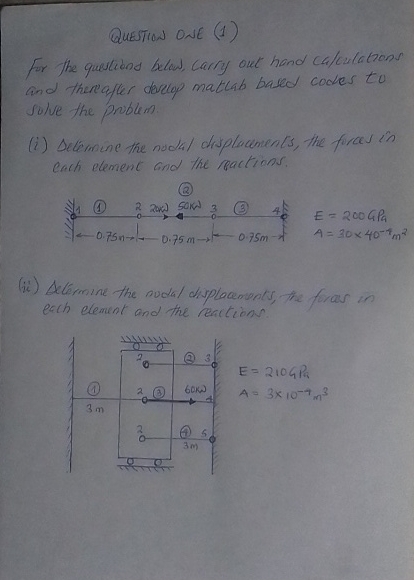 QUESTION ONE (1)
For the questions below, carry out hand calculations
and thereafter develop matlab based codes to
solve the problem.
(i) Determine the nodal displacements, the forces in
each element and the reactions.
②
1 ① 2 20KN 50KN 3 ③ 4
0.75m 0.75m 0.75m
E = 200GPa
A = 30x40⁻⁴m²
(ii) Determine the nodal displacements, the forces in
each element and the reactions.
2 ② 3
① 2 ③ 60KN 4
3m
2 ④ 5
3m
E = 210GPa
A = 3x10⁻⁴m³